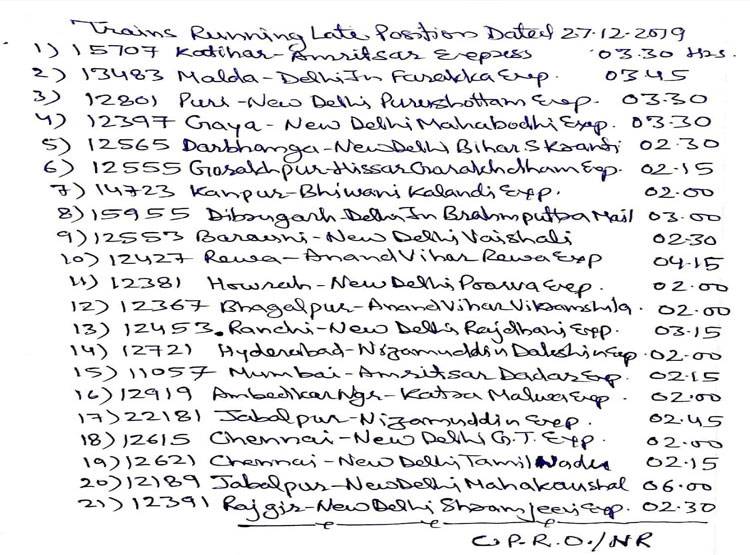 Trains Running Late Position Dated 27-12-2019
1) 15707 Katihar-Amritsar Express 03.30 Hrs.
2) 13483 Malda-Delhi Jn Farakka Exp. 0345
3) 12801 Puri-New Delhi Purushottam Exp. 03.30
4) 12397 Gaya-New Delhi Mahabodhi Exp. 03.30
5) 12565 Darbhanga-New Delhi Bihar S Kranti 02.30
6) 12555 Gorakhpur-Hissar Gorakhdham Exp. 02.15
7) 14723 Kanpur-Bhiwani Kalandi Exp. 02.00
8) 15955 Dibrugarh-Delhi Jn Brahmputra Mail 03.00
9) 12553 Barauni-New Delhi Vaishali 02.30
10) 12427 Rewa-Anand Vihar Rewa Exp 04.15
11) 12381 Howrah-New Delhi Poorva Exp. 02.00
12) 12367 Bhagalpur-Anand Vihar Vikramshila. 02.00
13) 12453. Ranchi-New Delhi Rajdhani Exp. 03.15
14) 12721 Hyderabad-Nizamuddin Dakshin Exp. 02.00
15) 11057 Mumbai-Amritsar Dadar Exp. 02.15
16) 12919 Ambedkar Ngr-Katra Malwa Exp 02.00
17) 22181 Jabalpur-Nizamuddin Exp. 02.45
18) 12615 Chennai-New Delhi G.T. Exp. 02.00
19) 12621 Chennai-New Delhi Tamil Nadu 02.15
20) 12189 Jabalpur-New Delhi Mahakaushal 06.00
21) 12391 Rajgir-New Delhi Shramjeevi Exp. 02.30
C.P.R.O./NR